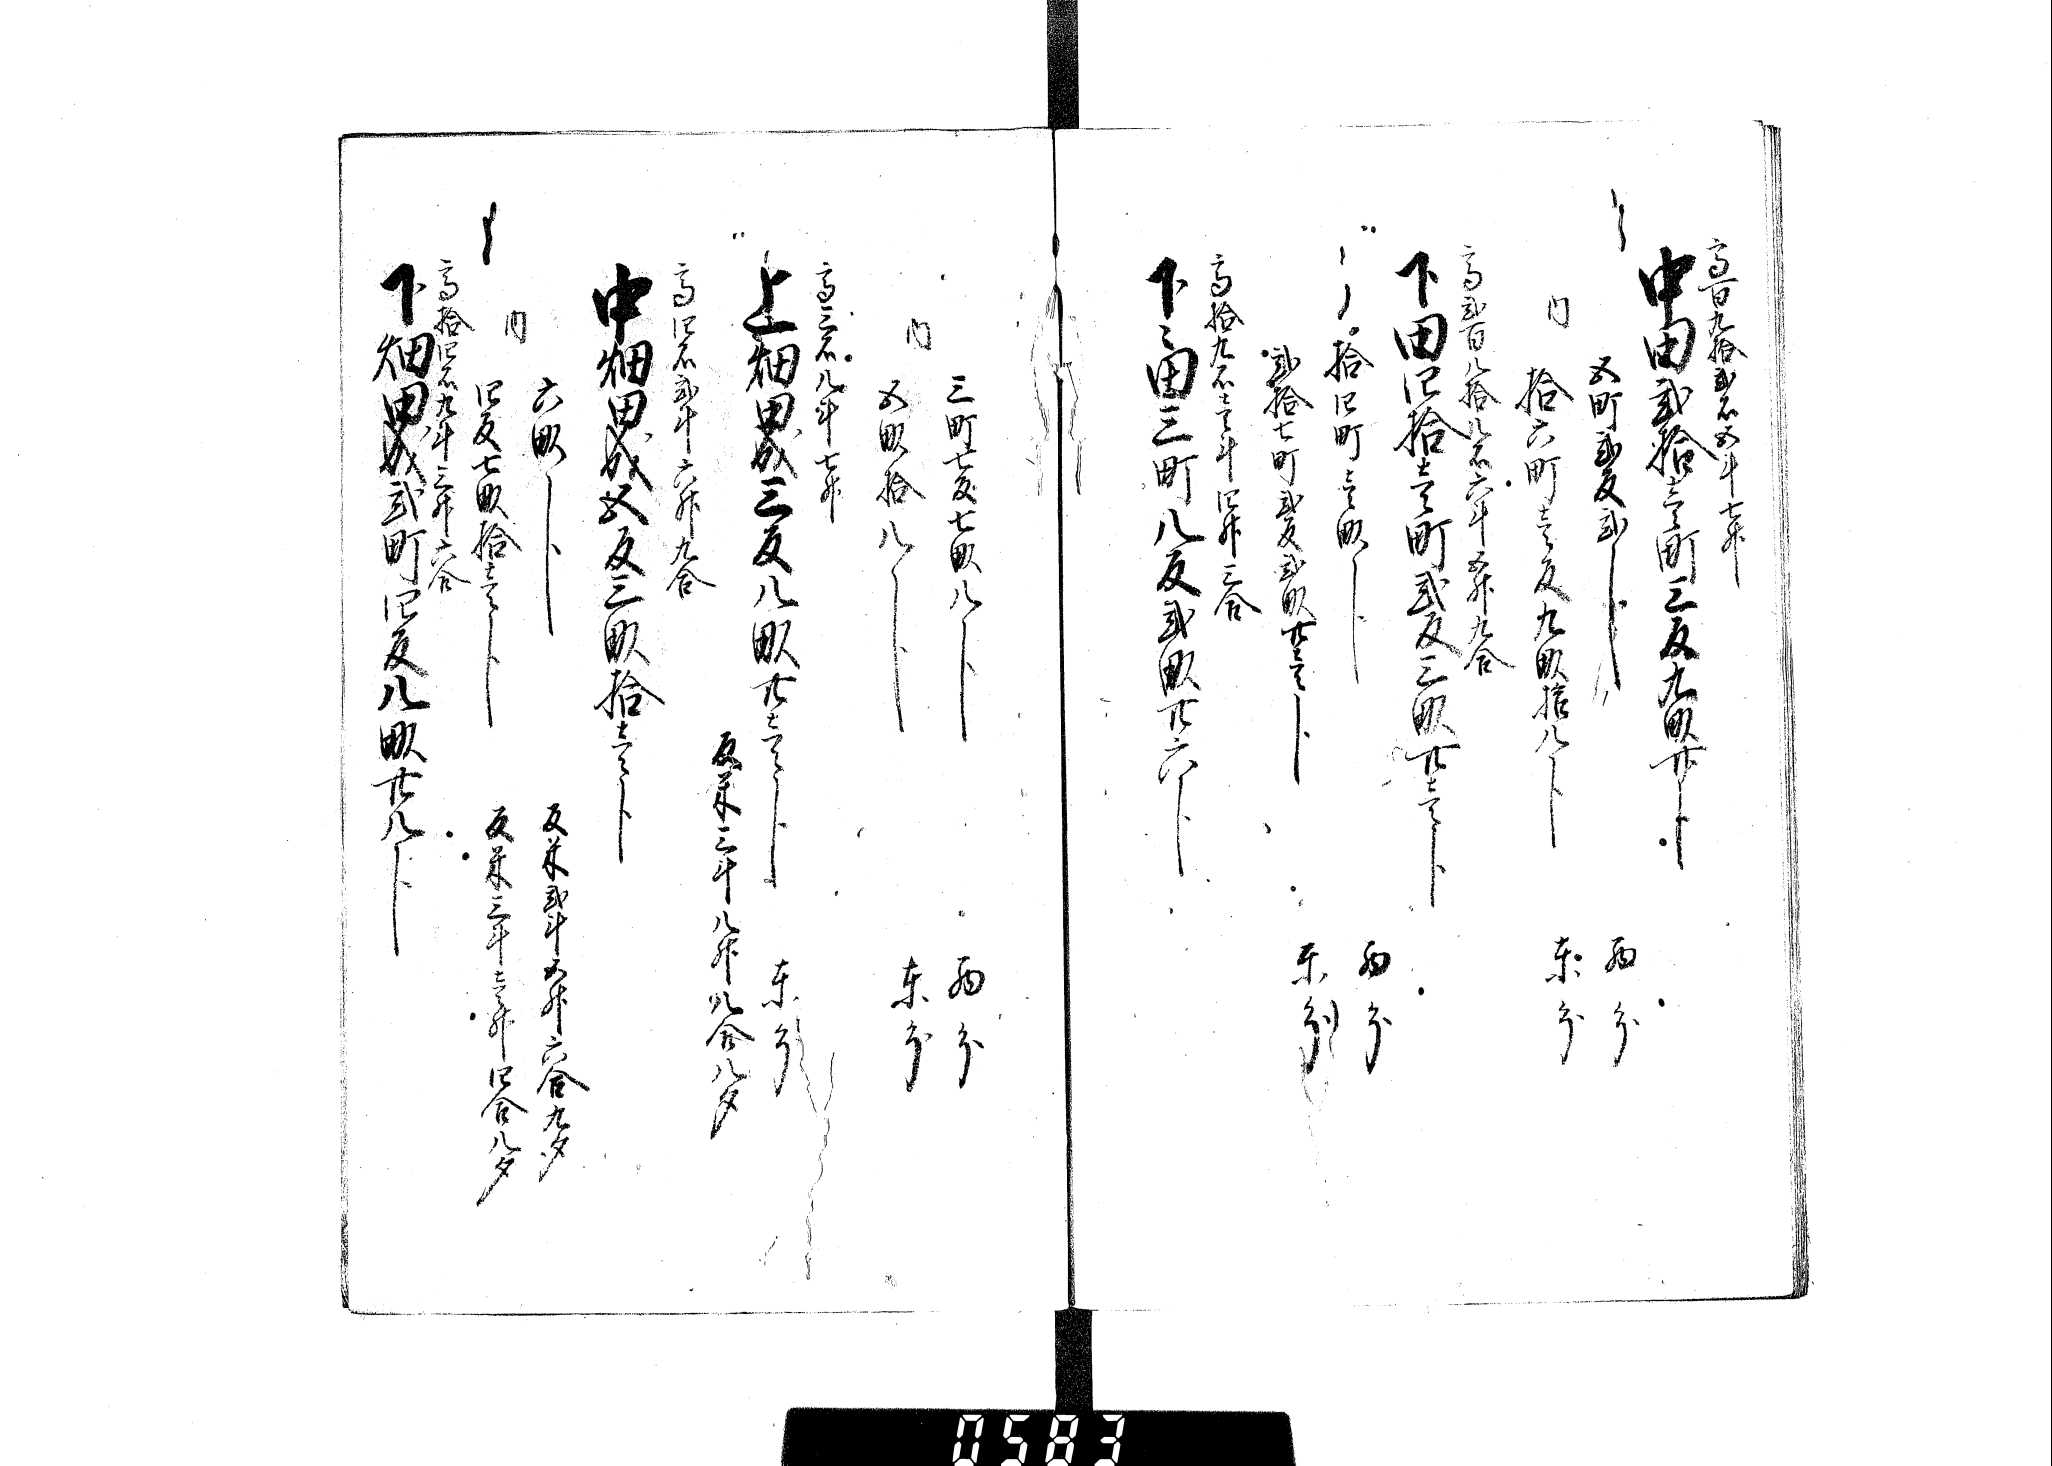 高百九拾弐石五斗七升
中田弐拾壱町三反九畝廿卜
五町弐反弐卜 西分
内
拾六町壱反九畝拾八卜 東分
高弐百八拾八石六斗五升九合
下田四拾壱町弐反三畝廿壱卜
拾四町壱畝卜 西分
弐拾七町弐反弐畝廿壱卜 東分
高拾九石壱斗四升三合
下々田三町八反弐畝廿六卜
三町七反七畝八卜 西分
内
五畝拾八卜 東分
高三石八斗七升
上畑田成三反八畝廿壱卜 東分
反米三斗八升八合八夕
高四石弐斗六升九合
中畑田成五反三畝拾壱卜
六畝卜 反米弐斗五升六合九夕
内
四反七畝拾壱卜 反米三斗壱升四合八夕
高拾四石九斗三升六合
下畑田成弐町四反八畝廿八卜
0583